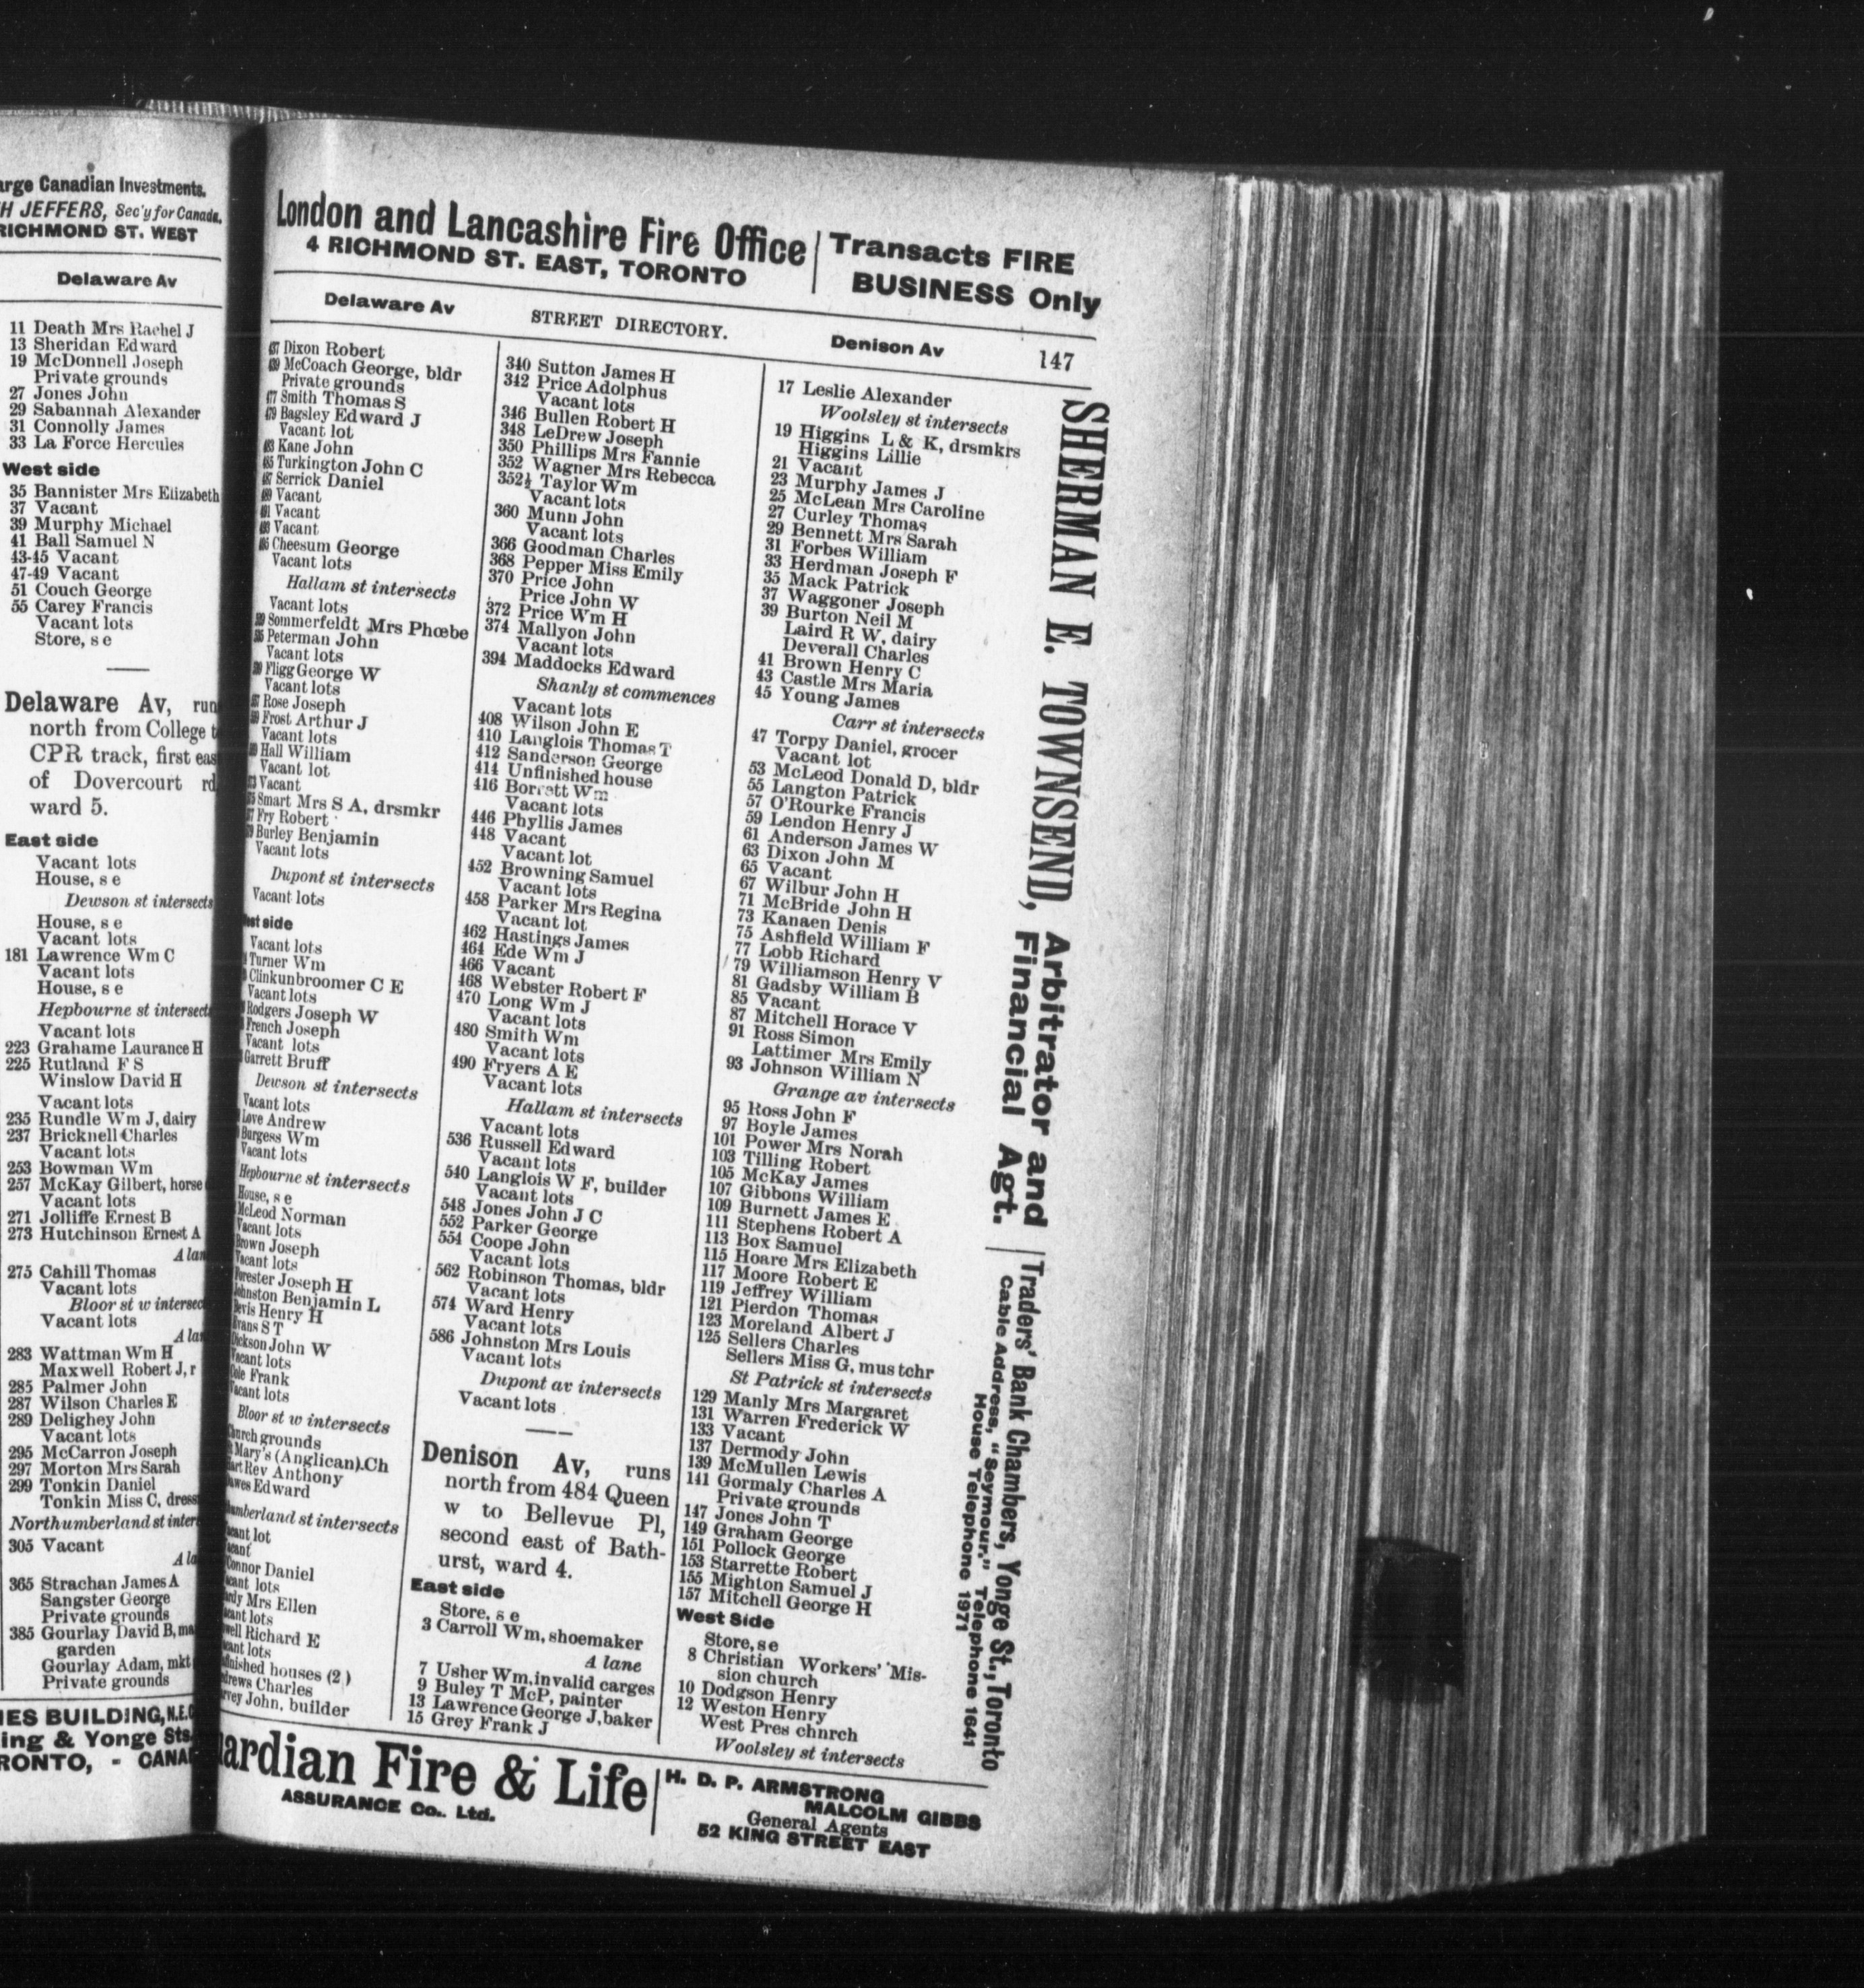 arge Canadian Investments.
H JEFFERS, Sec'y for Canada.
RICHMOND ST. WEST
Delaware Av
11 Death Mrs Rachel J
13 Sheridan Edward
19 McDonnell Joseph
Private grounds
27 Jones John
29 Sabannah Alexander
31 Connolly James
33 La Force Hercules
West side
35 Bannister Mrs Elizabeth
37 Vacant
39 Murphy Michael
41 Ball Samuel N
43-45 Vacant
47-49 Vacant
51 Couch George
55 Carey Francis
Vacant lots
Store, s e
Delaware Av, run
north from College t
CPR track, first eas
of Dovercourt rd
ward 5.
East side
Vacant lots
House, s e
Dewson st intersects
House, s e
Vacant lots
181 Lawrence Wm C
Vacant lots
House, s e
Hepbourne st intersect
Vacant lots
223 Grahame Laurance H
225 Rutland F S
Winslow David H
Vacant lots
235 Rundle Wm J, dairy
237 Bricknell Charles
Vacant lots
253 Bowman Wm
257 McKay Gilbert, horse
Vacant lots
271 Jolliffe Ernest B
273 Hutchinson Ernest A
A lan
275 Cahill Thomas
Vacant lots
Bloor st w intersec
Vacant lots
A la
283 Wattman Wm H
Maxwell Robert J, r
285 Palmer John
287 Wilson Charles E
289 Delighey John
Vacant lots
295 McCarron Joseph
297 Morton Mrs Sarah
299 Tonkin Daniel
Tonkin Miss C, dress
Northumberland st inter
305 Vacant
A la
365 Strachan James A
Sangster George
Private grounds
385 Gourlay David B, ma
garden
Gourlay Adam, mkt
Private grounds
IES BUILDING, N.E.C
ing & Yonge Sts.
RONTO, - CANA
London and Lancashire Fire Office
4 RICHMOND ST. EAST, TORONTO
Transacts FIRE
BUSINESS Only
Delaware Av
STREET DIRECTORY.
Denison Av
147
Dixon Robert
McCoach George, bldr
Private grounds
Smith Thomas S
Bagsley Edward J
Vacant lot
Kane John
Turkington John C
Serrick Daniel
Vacant
Vacant
Vacant
Cheesum George
Vacant lots
Hallam st intersects
Vacant lots
Sommerfeldt Mrs Phœbe
Peterman John
Vacant lots
Fligg George W
Vacant lots
Rose Joseph
Frost Arthur J
Vacant lots
Hall William
Vacant lot
Vacant
Smart Mrs S A, drsmkr
Fry Robert
Burley Benjamin
Vacant lots
Dupont st intersects
Vacant lots
est side
Vacant lots
Turner Wm
Clinkunbroomer C E
Vacant lots
Rodgers Joseph W
French Joseph
Vacant lots
Garrett Bruff
Dewson st intersects
Vacant lots
Love Andrew
Burgess Wm
Vacant lots
Hepbourne st intersects
House, s e
McLeod Norman
Vacant lots
Brown Joseph
Vacant lots
Forester Joseph H
Johnston Benjamin L
Bevis Henry H
Evans S T
Dickson John W
Vacant lots
Cole Frank
Vacant lots
Bloor st w intersects
Church grounds
Mary's (Anglican) Ch
art Rev Anthony
awes Edward
umberland st intersects
acant lot
acant
Connor Daniel
acant lots
ardy Mrs Ellen
acant lots
well Richard E
acant lots
finished houses (2)
drews Charles
rvey John, builder
340 Sutton James H
342 Price Adolphus
Vacant lots
346 Bullen Robert H
348 LeDrew Joseph
350 Phillips Mrs Fannie
352 Wagner Mrs Rebecca
352½ Taylor Wm
Vacant lots
360 Munn John
Vacant lots
366 Goodman Charles
368 Pepper Miss Emily
370 Price John
Price John W
372 Price Wm H
374 Mallyon John
Vacant lots
394 Maddocks Edward
Shanly st commences
Vacant lots
408 Wilson John E
410 Langlois Thomas T
412 Sanderson George
414 Unfinished house
416 Borrett Wm
Vacant lots
446 Phyllis James
448 Vacant
Vacant lot
452 Browning Samuel
Vacant lots
458 Parker Mrs Regina
Vacant lot
462 Hastings James
464 Ede Wm J
466 Vacant
468 Webster Robert F
470 Long Wm J
Vacant lots
480 Smith Wm
Vacant lots
490 Fryers A E
Vacant lots
Hallam st intersects
Vacant lots
536 Russell Edward
Vacant lots
540 Langlois W F, builder
Vacant lots
548 Jones John J C
552 Parker George
554 Coope John
Vacant lots
562 Robinson Thomas, bldr
Vacant lots
574 Ward Henry
Vacant lots
586 Johnston Mrs Louis
Vacant lots
Dupont av intersects
Vacant lots
Denison Av, runs
north from 484 Queen
w to Bellevue Pl,
second east of Bath-
urst, ward 4.
East side
Store, s e
3 Carroll Wm, shoemaker
A lane
7 Usher Wm, invalid carges
9 Buley T McP, painter
13 Lawrence George J, baker
15 Grey Frank J
17 Leslie Alexander
Woolsley st intersects
19 Higgins L & K, drsmkrs
Higgins Lillie
21 Vacant
23 Murphy James J
25 McLean Mrs Caroline
27 Curley Thomas
29 Bennett Mrs Sarah
31 Forbes William
33 Herdman Joseph F
35 Mack Patrick
37 Waggoner Joseph
39 Burton Neil M
Laird R W, dairy
Deverall Charles
41 Brown Henry C
43 Castle Mrs Maria
45 Young James
Carr st intersects
47 Torpy Daniel, grocer
Vacant lot
53 McLeod Donald D, bldr
55 Langton Patrick
57 O'Rourke Francis
59 Lendon Henry J
61 Anderson James W
63 Dixon John M
65 Vacant
67 Wilbur John H
71 McBride John H
73 Kanaen Denis
75 Ashfield William F
77 Lobb Richard
79 Williamson Henry V
81 Gadsby William B
85 Vacant
87 Mitchell Horace V
91 Ross Simon
Lattimer Mrs Emily
93 Johnson William N
Grange av intersects
95 Ross John F
97 Boyle James
101 Power Mrs Norah
103 Tilling Robert
105 McKay James
107 Gibbons William
109 Burnett James E
111 Stephens Robert A
113 Box Samuel
115 Hoare Mrs Elizabeth
117 Moore Robert E
119 Jeffrey William
121 Pierdon Thomas
123 Moreland Albert J
125 Sellers Charles
Sellers Miss G, mus tchr
St Patrick st intersects
129 Manly Mrs Margaret
131 Warren Frederick W
133 Vacant
137 Dermody John
139 McMullen Lewis
141 Gormaly Charles A
Private grounds
147 Jones John T
149 Graham George
151 Pollock George
153 Starrette Robert
155 Mighton Samuel J
157 Mitchell George H
West Side
Store, s e
8 Christian Workers' Mis-
sion church
10 Dodgson Henry
12 Weston Henry
West Pres chnrch
Woolsley st intersects
SHERMAN E. TOWNSEND, Arbitrator and
Financial Agt.
Traders' Bank Chambers, Yonge St., Toronto
Cable Address, "Seymour." Telephone 1641
House Telephone 1971
ardian Fire & Life
ASSURANCE Co., Ltd.
H. D. P. ARMSTRONG
MALCOLM GIBBS
General Agents
52 KING STREET EAST